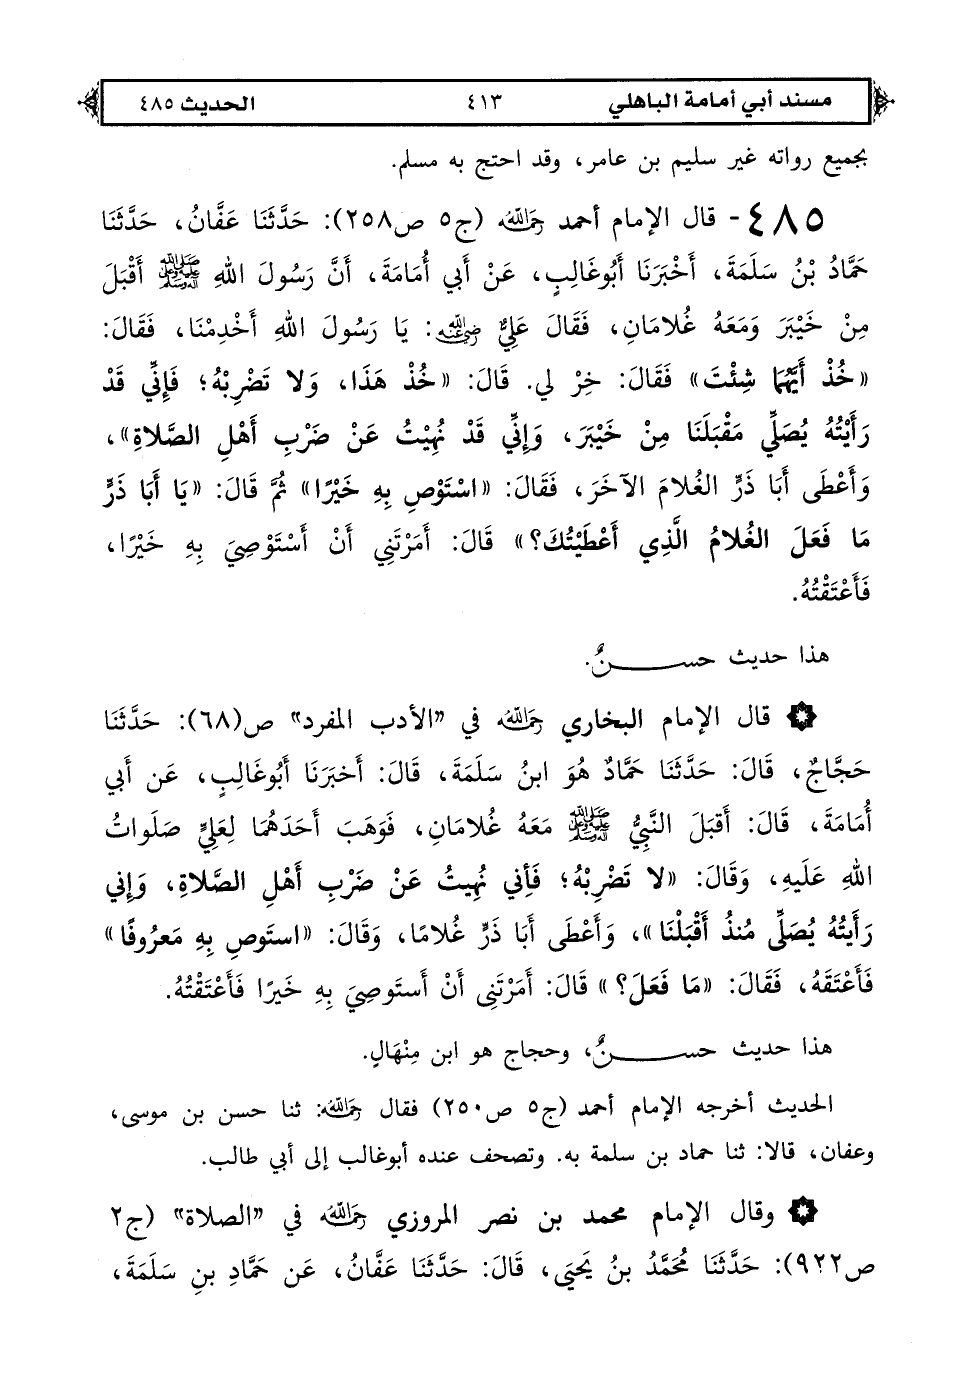 مسند أبي أمامة الباهلي ٤١٣ الحديث ٤٨٥
بجميع رواته غير سليم بن عامر، وقد احتج به مسلم.
٤٨٥- قال الإمام أحمد رحمه الله (ج٥ ص٢٥٨): حَدَّثَنَا عَفَّانُ، حَدَّثَنَا
حَمَّادُ بْنُ سَلَمَةَ، أَخْبَرَنَا أَبُوغَالِبٍ، عَنْ أَبِي أُمَامَةَ، أَنَّ رَسُولَ اللهِ ﷺ أَقْبَلَ
مِنْ خَيْبَرَ وَمَعَهُ غُلامَانِ، فَقَالَ عَلِيٌّ رضي الله عنه: يَا رَسُولَ اللهِ أَخْدِمْنَا، فَقَالَ:
«خُذْ أَيَّهُمَا شِئْتَ» فَقَالَ: خِرْ لي. قَالَ: «خُذْ هَذَا، وَلا تَضْرِبْهُ؛ فَإِنِّي قَدْ
رَأَيْتُهُ يُصَلِّي مَقْبَلَنَا مِنْ خَيْبَرَ، وَإِنِّي قَدْ نُهِيْتُ عَنْ ضَرْبِ أَهْلِ الصَّلاةِ»،
وَأَعْطَى أَبَا ذَرٍّ الغُلامَ الآخَرَ، فَقَالَ: «اسْتَوْصِ بِهِ خَيْرًا» ثُمَّ قَالَ: «يَا أَبَا ذَرٍّ
مَا فَعَلَ الغُلامُ الَّذِي أَعْطَيْتُكَ؟» قَالَ: أَمَرْتَنِي أَنْ أَسْتَوْصِيَ بِهِ خَيْرًا،
فَأَعْتَقْتُهُ.
هذا حديث حســـنٌ.
قال الإمام البخاري رحمه الله في "الأدب المفرد" ص(٦٨): حَدَّثَنَا
حَجَّاجٌ، قَالَ: حَدَّثَنَا حَمَّادٌ هُوَ ابنُ سَلَمَةَ، قَالَ: أَخبَرَنَا أَبُوغَالِبٍ، عَن أَبي
أُمَامَةَ، قَالَ: أَقبَلَ النَّبِيُّ ﷺ مَعَهُ غُلامَانِ، فَوَهَبَ أَحَدَهُمَا لِعَلِيٍّ صَلَوَاتُ
اللهِ عَلَيهِ، وَقَالَ: «لا تَضْرِبْهُ؛ فَأِني نُهِيتُ عَنْ ضَرْبِ أَهْلِ الصَّلاةِ، وَإِني
رَأَيتُهُ يُصَلِّي مُنذُ أَقْبَلْنَا»، وَأَعْطَى أَبَا ذَرٍّ غُلامًا، وَقَالَ: «استَوصِ بِهِ مَعرُوفًا»
فَأَعْتَقَهُ، فَقَالَ: «مَا فَعَلَ؟» قَالَ: أَمَرْتَنِي أَنْ أَستَوصِيَ بِهِ خَيرًا فَأَعْتَقْتُهُ.
هذا حديث حســـنٌ، وحجاج هو ابن مِنْهَالٍ.
الحديث أخرجه الإمام أحمد (ج٥ ص٢٥٠) فقال رحمه الله: ثنا حسن بن موسى،
وعفان، قالا: ثنا حماد بن سلمة به. وتصحف عنده أبوغالب إلى أبي طالب.
وقال الإمام محمد بن نصر المروزي رحمه الله في "الصلاة" (ج٢
ص٩٢٢): حَدَّثَنَا مُحَمَّدُ بنُ يَحيَى، قَالَ: حَدَّثَنَا عَفَّانُ، عَن حَمَّادِ بنِ سَلَمَةَ،